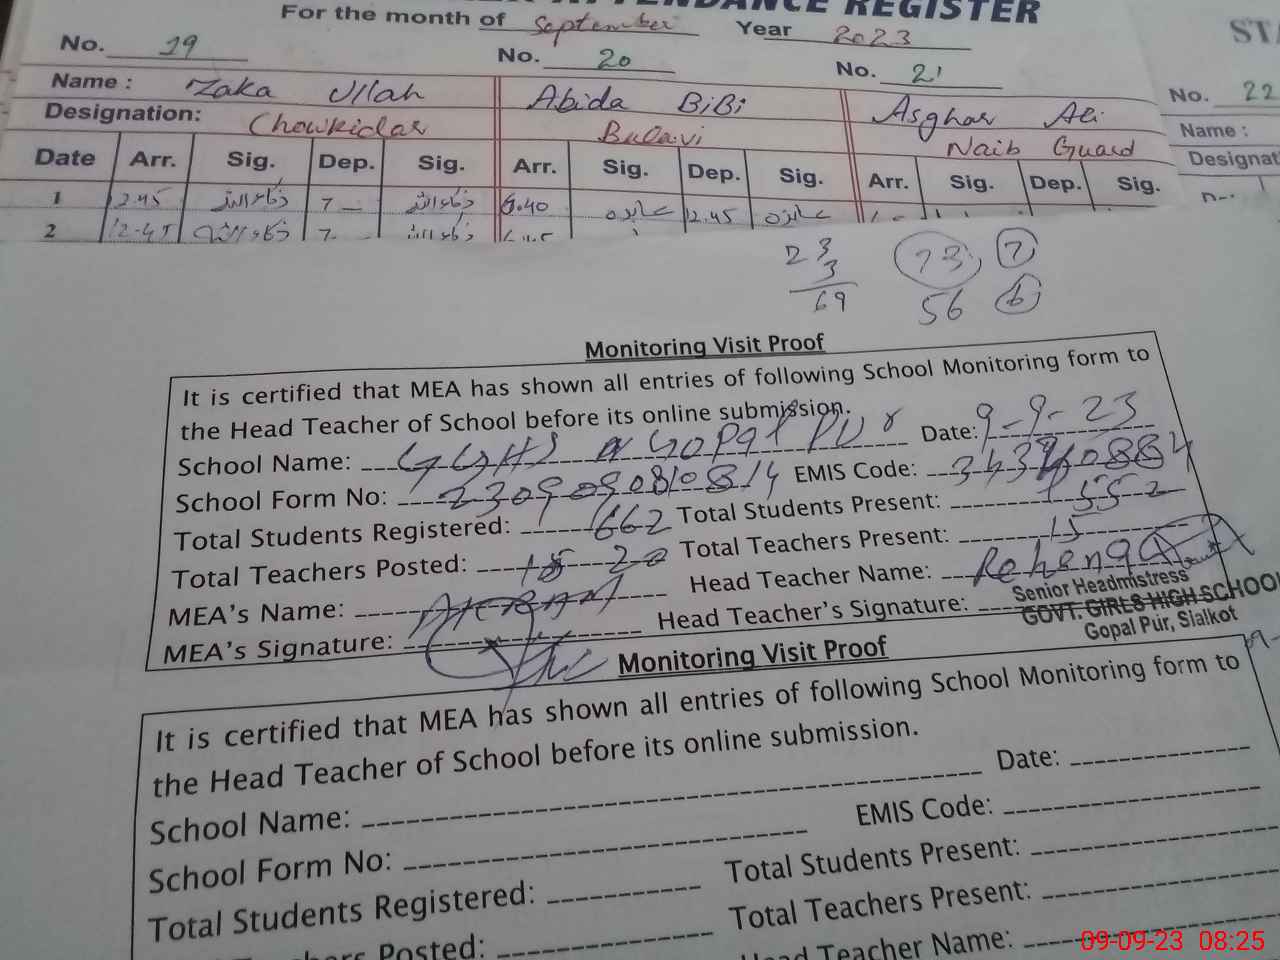 ATTENDANCE REGISTER
For the month of September Year 2023
No. 19 No. 20 No. 21
Name : Zaka Ullah Abida BiBi Asghar Ali
Designation: Chowkidar Bulavi Naib Guard
Date Arr. Sig. Dep. Sig. Arr. Sig. Dep. Sig. Arr. Sig. Dep. Sig.
1 12.45 ذکاءاللہ 7 ذکاءاللہ 6.40 عابدہ 12.45 عابدہ
2 12-45 ذکاءاللہ 7 ذکاءاللہ
No. 22
Name :
23
3
69
73 7
56 6
Monitoring Visit Proof
It is certified that MEA has shown all entries of following School Monitoring form to
the Head Teacher of School before its online submission.
School Name: GGHS Gopal Pur Date: 9-9-23
School Form No: 2309090810814 EMIS Code:
Total Students Registered: 662 Total Students Present: 552
Total Teachers Posted: 20 Total Teachers Present: 15
MEA's Name: AKRAM Head Teacher Name:
MEA's Signature: Head Teacher's Signature:
Senior Headmistress
GOVT. GIRLS HIGH SCHOOL
Gopal Pur, Sialkot
Monitoring Visit Proof
It is certified that MEA has shown all entries of following School Monitoring form to
the Head Teacher of School before its online submission.
School Name: Date:
School Form No: EMIS Code:
Total Students Registered: Total Students Present:
Posted: Total Teachers Present:
Head Teacher Name:
09-09-23 08:25